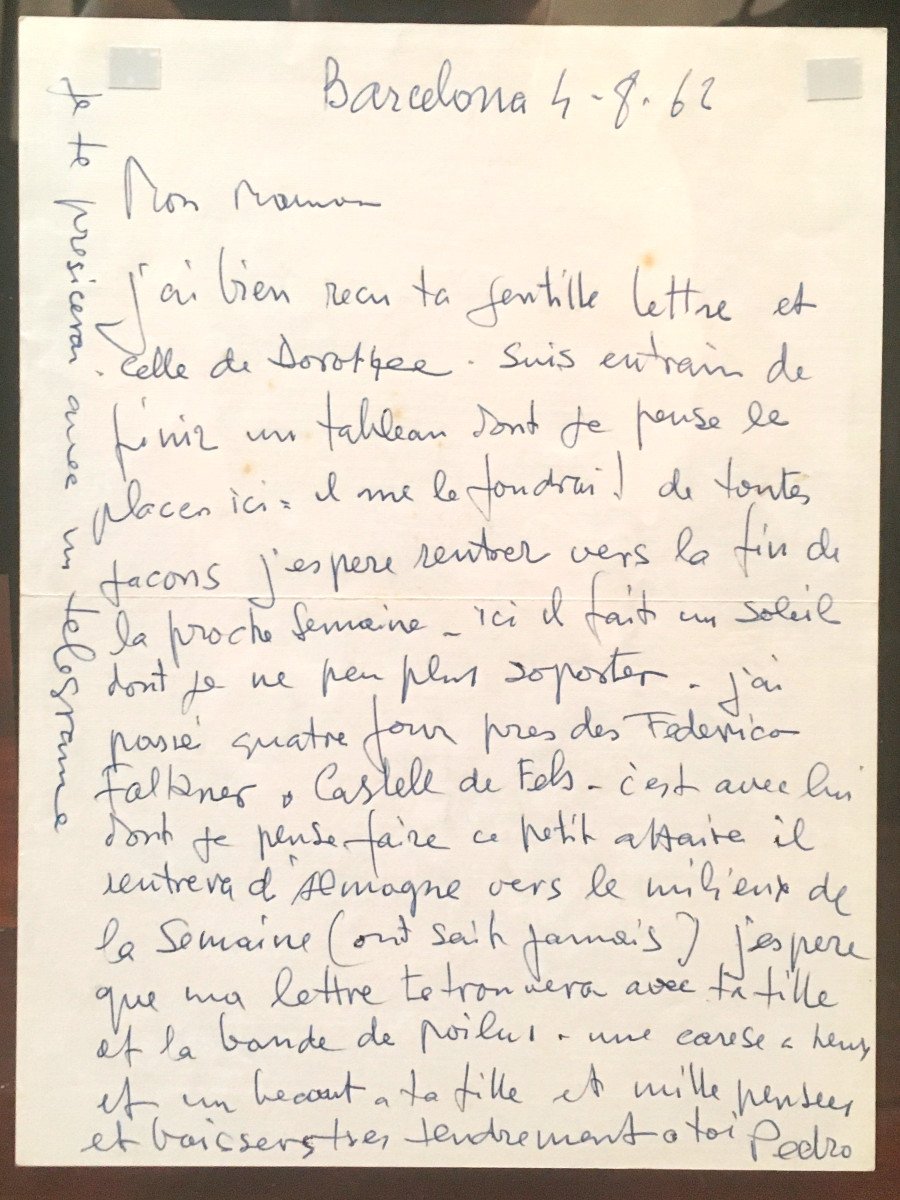 Barcelona 4-8-62
Mon maman
j'ai bien recu ta gentille lettre et
celle de Dorothee. suis entrain de
finir un tableau dont je pense le
placer ici = il me le foudrai! de toutes
facons j'espere rentrer vers la fin de
la proche semaine - ici il fait un soleil
dont je ne peu plus soporter - j'ai
passé quatre jour pres des Federico
Falkner, Castell de Fels - c'est avec lui
dont je pense faire ce petit affaire il
rentrera d'Almagne vers le milieux de
la Semaine (ont sait jamais) j'espere
que ma lettre te trouvera avec ta fille
et la bande de poilus - une carese a
et un becout a ta fille et mille pensees
et baissers tres tendrement a toi Pedro
Je te presicerai avec un telegramme